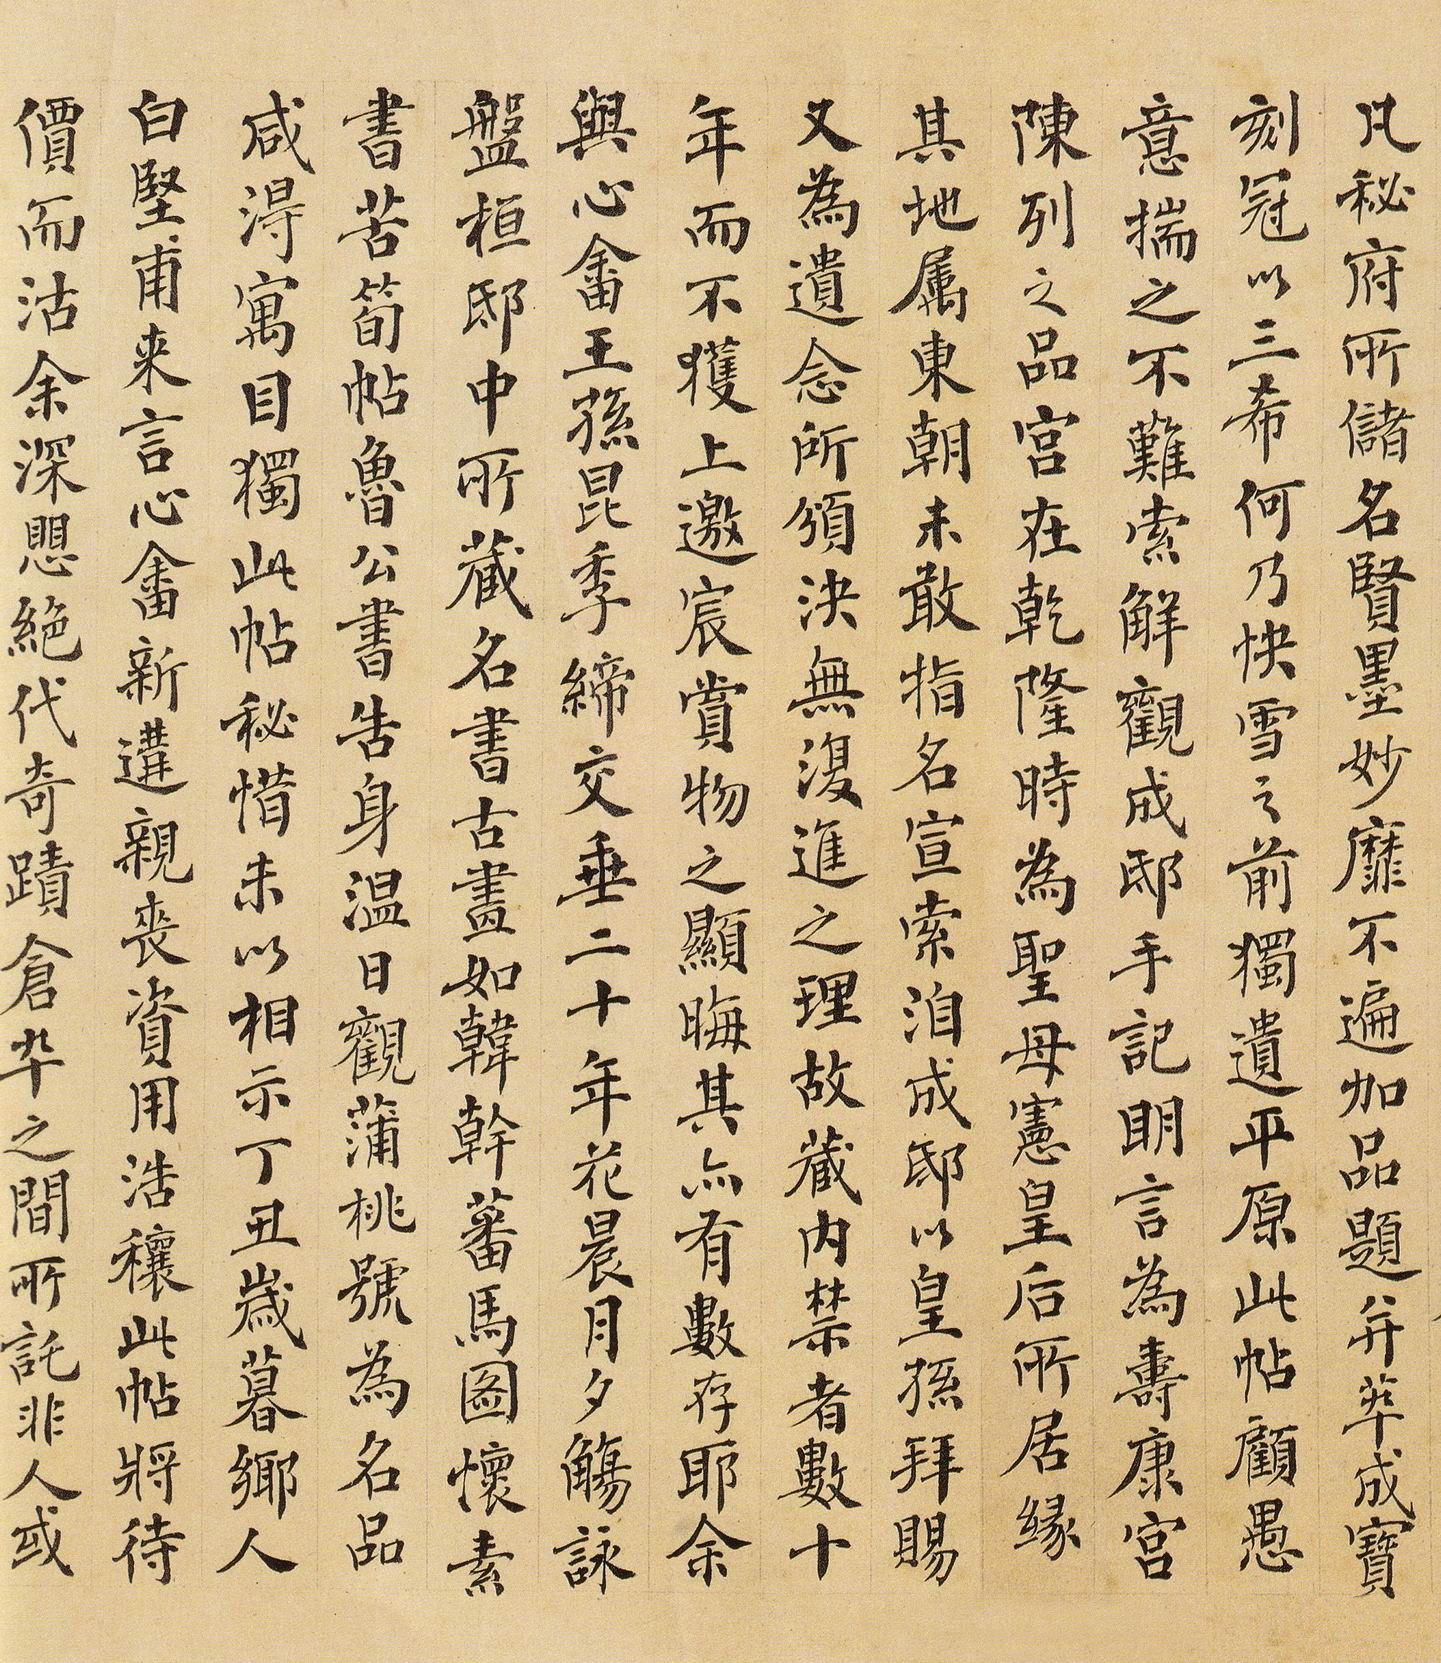 凡秘府所儲名賢墨妙靡不遍加品題并萃成寶
刻冠以三希何乃快雪之前獨遺平原此帖顧愚
意揣之不難索解觀成邸手記明言為壽康宮
陳列之品宮在乾隆時為聖母憲皇后所居緣
其地属東朝未敢指名宣索洎成邸以皇孫拜賜
又為遺念所頒決無復進之理故藏內禁者數十
年而不獲上邀宸賞物之顯晦其亦有數存耶余
與心畬王孫昆季締交垂二十年花晨月夕觴詠
盤桓邸中所藏名書古畫如韓幹蕃馬圖懷素
書苦筍帖魯公書告身温日觀蒲桃號為名品
咸得寓目獨此帖秘惜未以相示丁丑歲暮鄉人
白堅甫来言心畬新遘親喪資用浩穰此帖將待
價而沽余深恐絕代奇蹟倉卒之間所託非人或